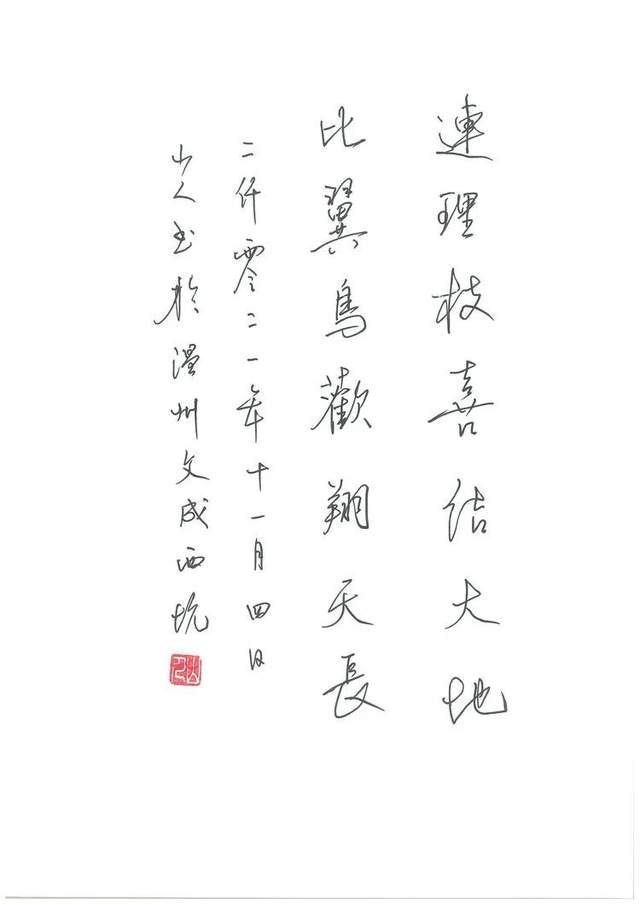 連理枝喜结大地
比翼鳥歡翔天長
二仟零二一年十一月四日
山人书於温州文成西坑